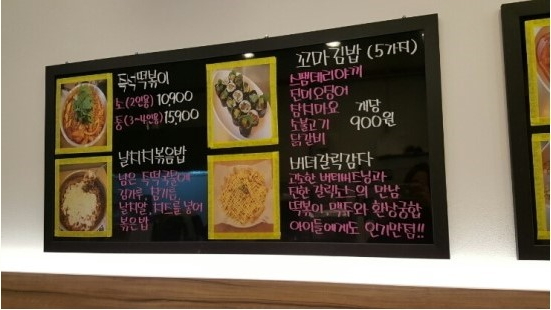 즉석떡볶이
소(2인용) 10900
중(3~4인용) 15,900
꼬마김밥 (5가지)
스팸데리야끼
진미오징어
참치마요
소불고기
닭갈비
개당
900원
날치치볶음밥
남은 즉떡국물에
김가루, 참기름,
날치알, 치즈를 넣어
볶은밥
버터갈릭감자
고소한 버터버트넛과
진한 갈릭소스의 만남
떡볶이 맥주와 환상궁합
아이들에게도 인기만점!!